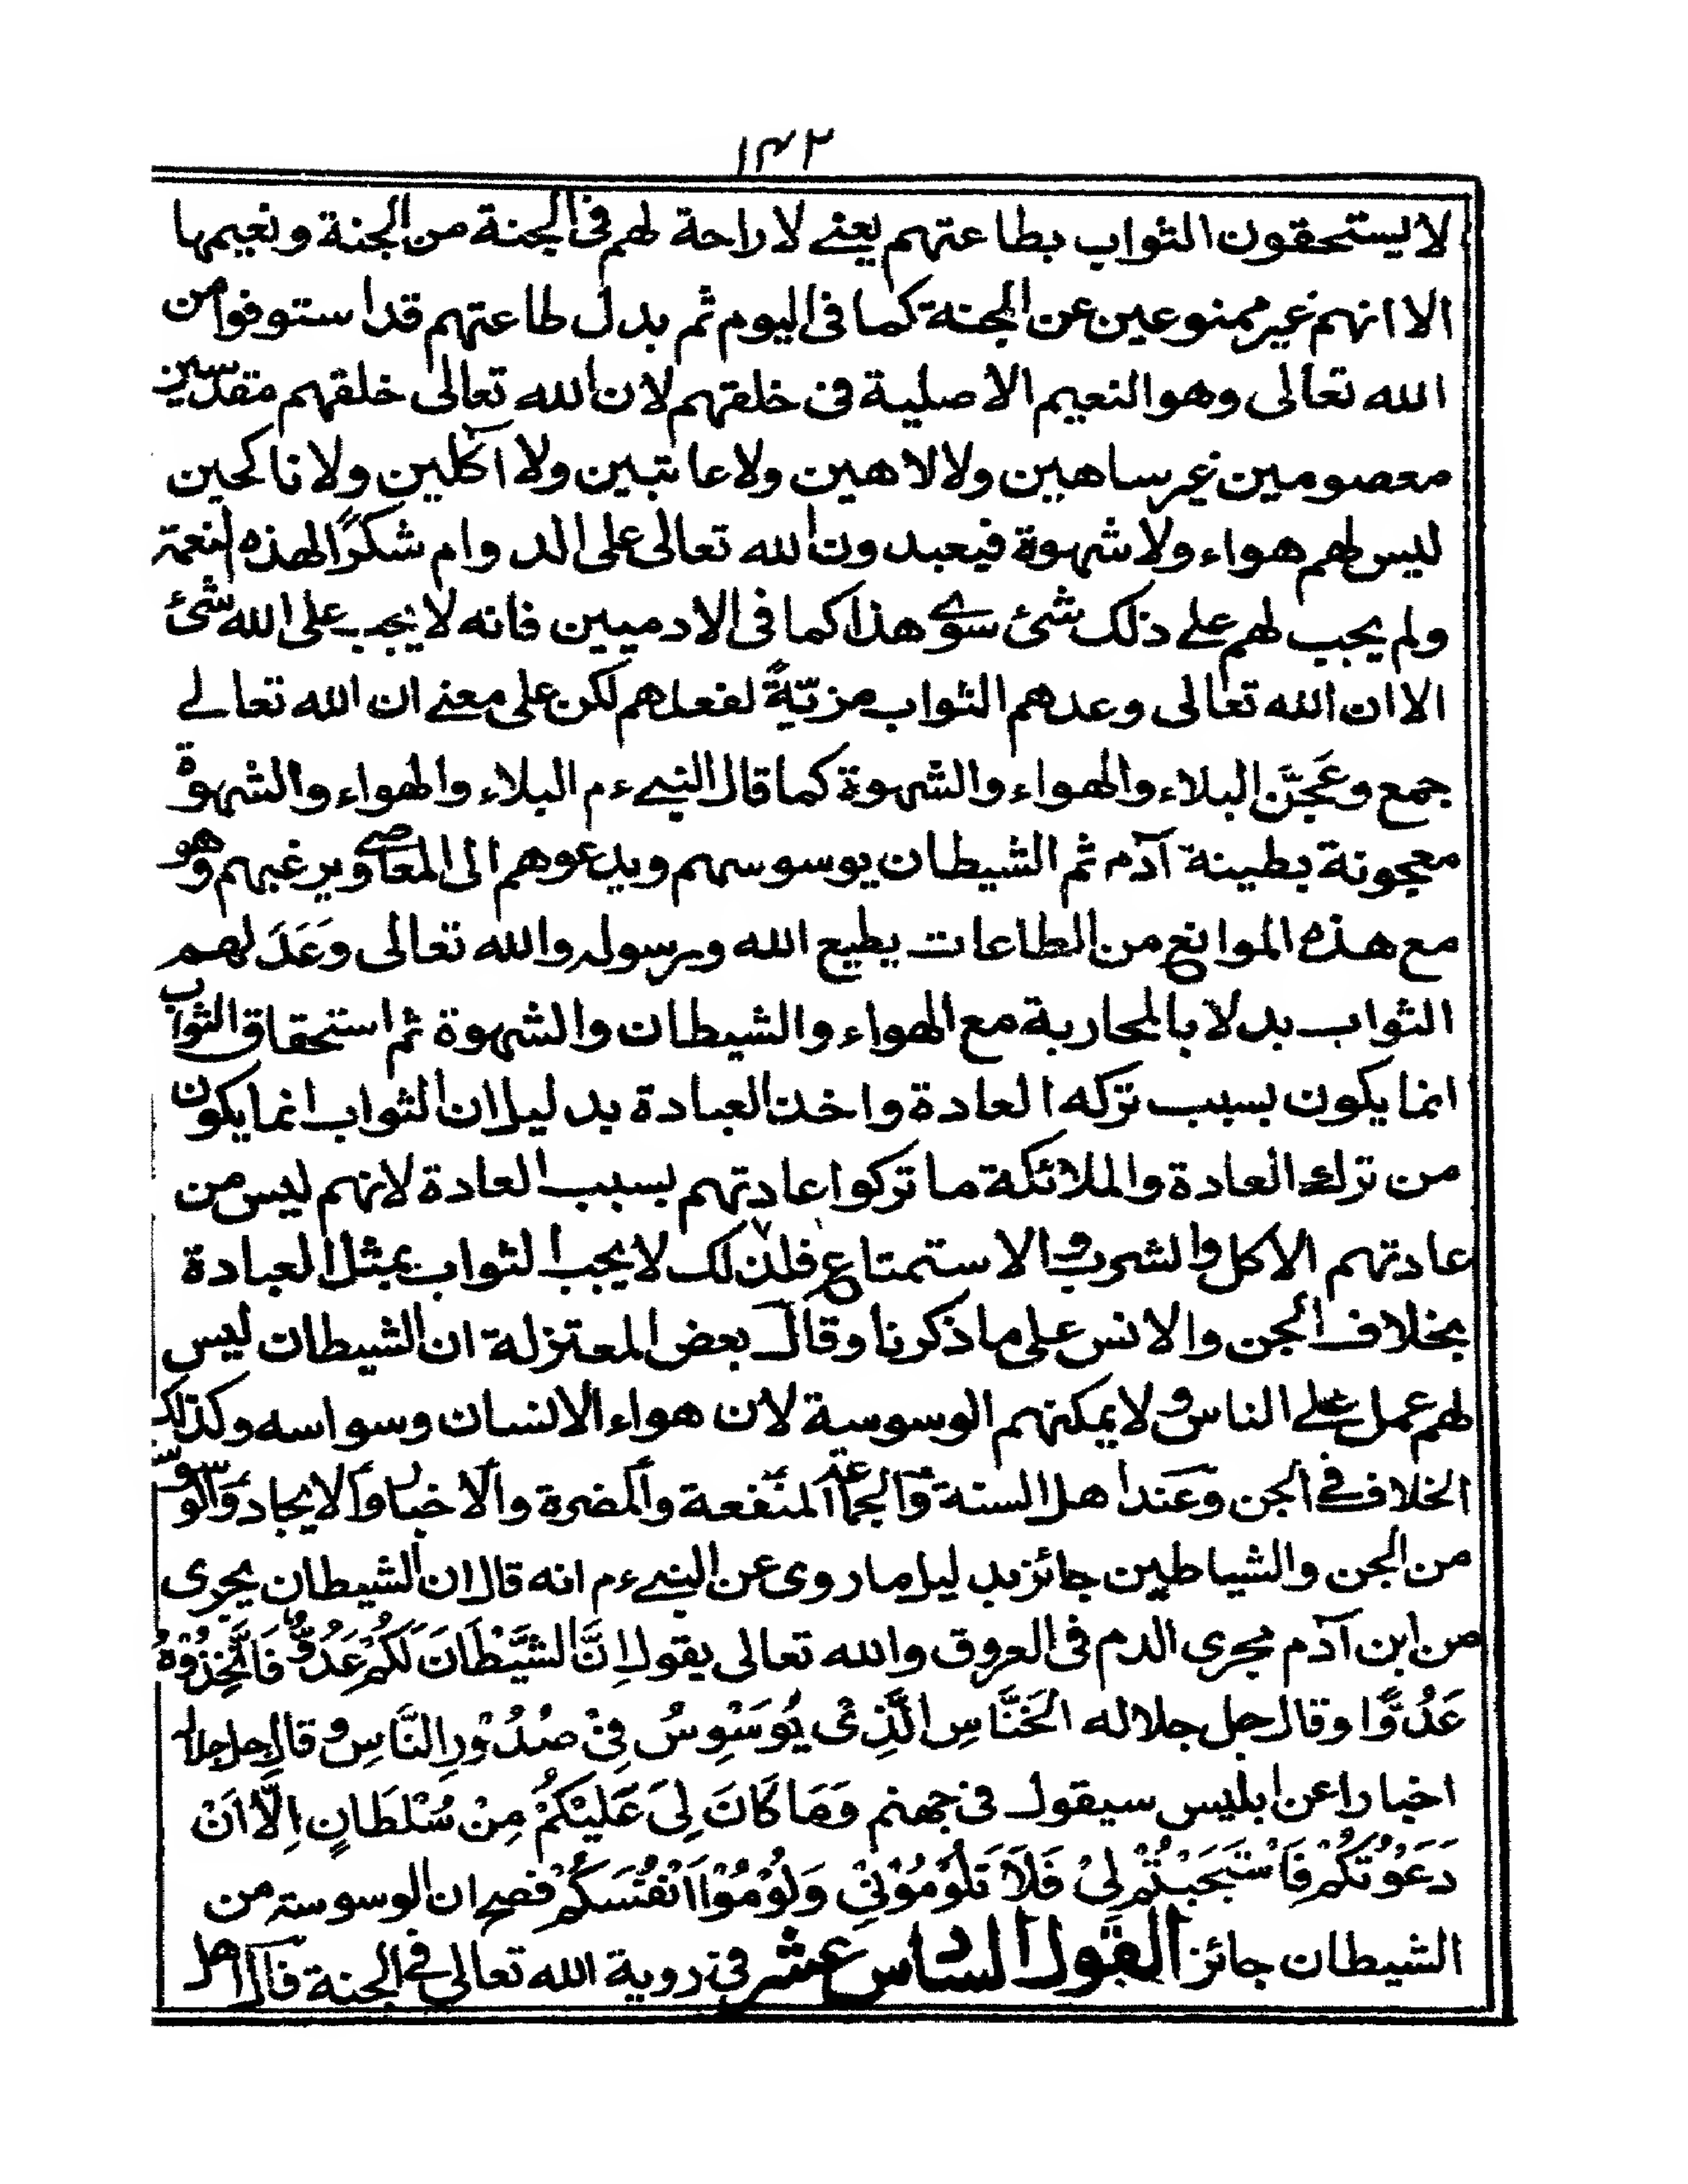 ١٤٢
لا يستحقون الثواب بطاعتهم يعنے لا راحة لهم فى الجنة من الجنة ونعيمها
الا انهم غير ممنوعين عن الجنة كما فى اليوم ثم بدل طاعتهم قد استوفوا من
الله تعالى وهو النعيم الاصلية فى خلقهم لان الله تعالى خلقهم مقدسين
معصومين غير ساهين ولا لاهين ولا عائبين ولا آكلين ولا ناكحين
ليس لهم هواء ولا شهوة فيعبدون الله تعالى على الدوام شكرًا لهذه النعمة
ولم يجب لهم علے ذلك شئ سوے هذا كما فى الادميين فانه لا يجب على الله شئ
الا ان الله تعالى وعدهم الثواب مزيّةً لفعلهم لكن على معنے ان الله تعالے
جمع وعَجَّن البلاء والهواء والشهوة كما قال النبے ءم البلاء والهواء والشهوة
معجونة بطينة آدم ثم الشيطان يوسوسهم ويدعوهم الى المعاصى ويرغبهم وهو
مع هذه الموانع من الطاعات يطيع الله ورسوله والله تعالى وَعَدَ لهم
الثواب بدلا بالمحاربة مع الهواء والشيطان والشهوة ثم استحقاق الثواب
انما يكون بسبب تركه العادة واخذ العبادة بدليل ان الثواب انما يكون
من ترك العادة والملائكة ما تركوا عادتهم بسبب العادة لانهم ليس من
عادتهم الاكل والشرب والاستمتاع فلذلك لا يجب الثواب بمثل العبادة
بخلاف الجن والانس على ما ذكرنا وقال بعض المعتزلة ان الشيطان ليس
لهم عمل علے الناس ولا يمكنهم الوسوسة لان هواء الانسان وسواسه وكذلك
الخلاف فے الجن وعند اهل السنة والجماعة المنفعة والمضرة والاخبار والايجاد والوسوسة
من الجن والشياطين جائز بدليل ما روى عن النبے ءم انه قال ان الشيطان يجرى
من ابن آدم مجرى الدم فى العروق والله تعالى يقول اِنَّ الشَّيْطَانَ لَكُمْ عَدُوٌّ فَاتَّخِذُوْهُ
عَدُوًّا وقال جل جلاله الخَنَّاسِ الَّذِىْ يُوَسْوِسُ فِىْ صُدُوْرِ النَّاسِ وقال جل جلاله
اخبارا عن ابليس سيقول فى جهنم وَمَا كَانَ لِىَ عَلَيْكُمْ مِنْ سُلْطَانٍ اِلَّا اَنْ
دَعَوْتُكُمْ فَاسْتَجَبْتُمْ لِىْ فَلَا تَلُوْمُوْنِىْ وَلُوْمُوْا اَنْفُسَكُمْ فصح ان الوسوسة من
الشيطان جائز القول السادس عشر فى روية الله تعالى فے الجنة قال اهل